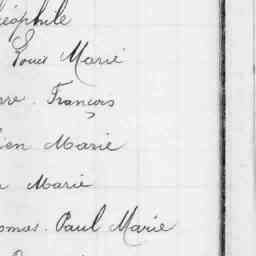 éophile
Louis Marie
re. François
ien Marie
Marie
omas. Paul Marie